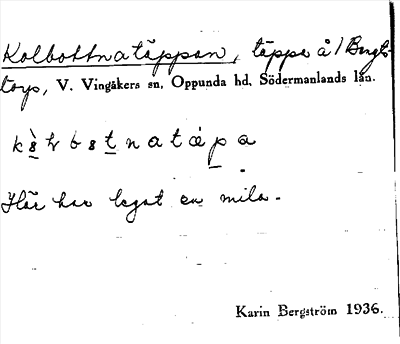 Kolbottnatäppan, täppa å 1 Bengts-
torp, V. Vingåkers sn, Oppunda hd, Södermanlands län.
Här har legat en mila.
Karin Bergström 1936.